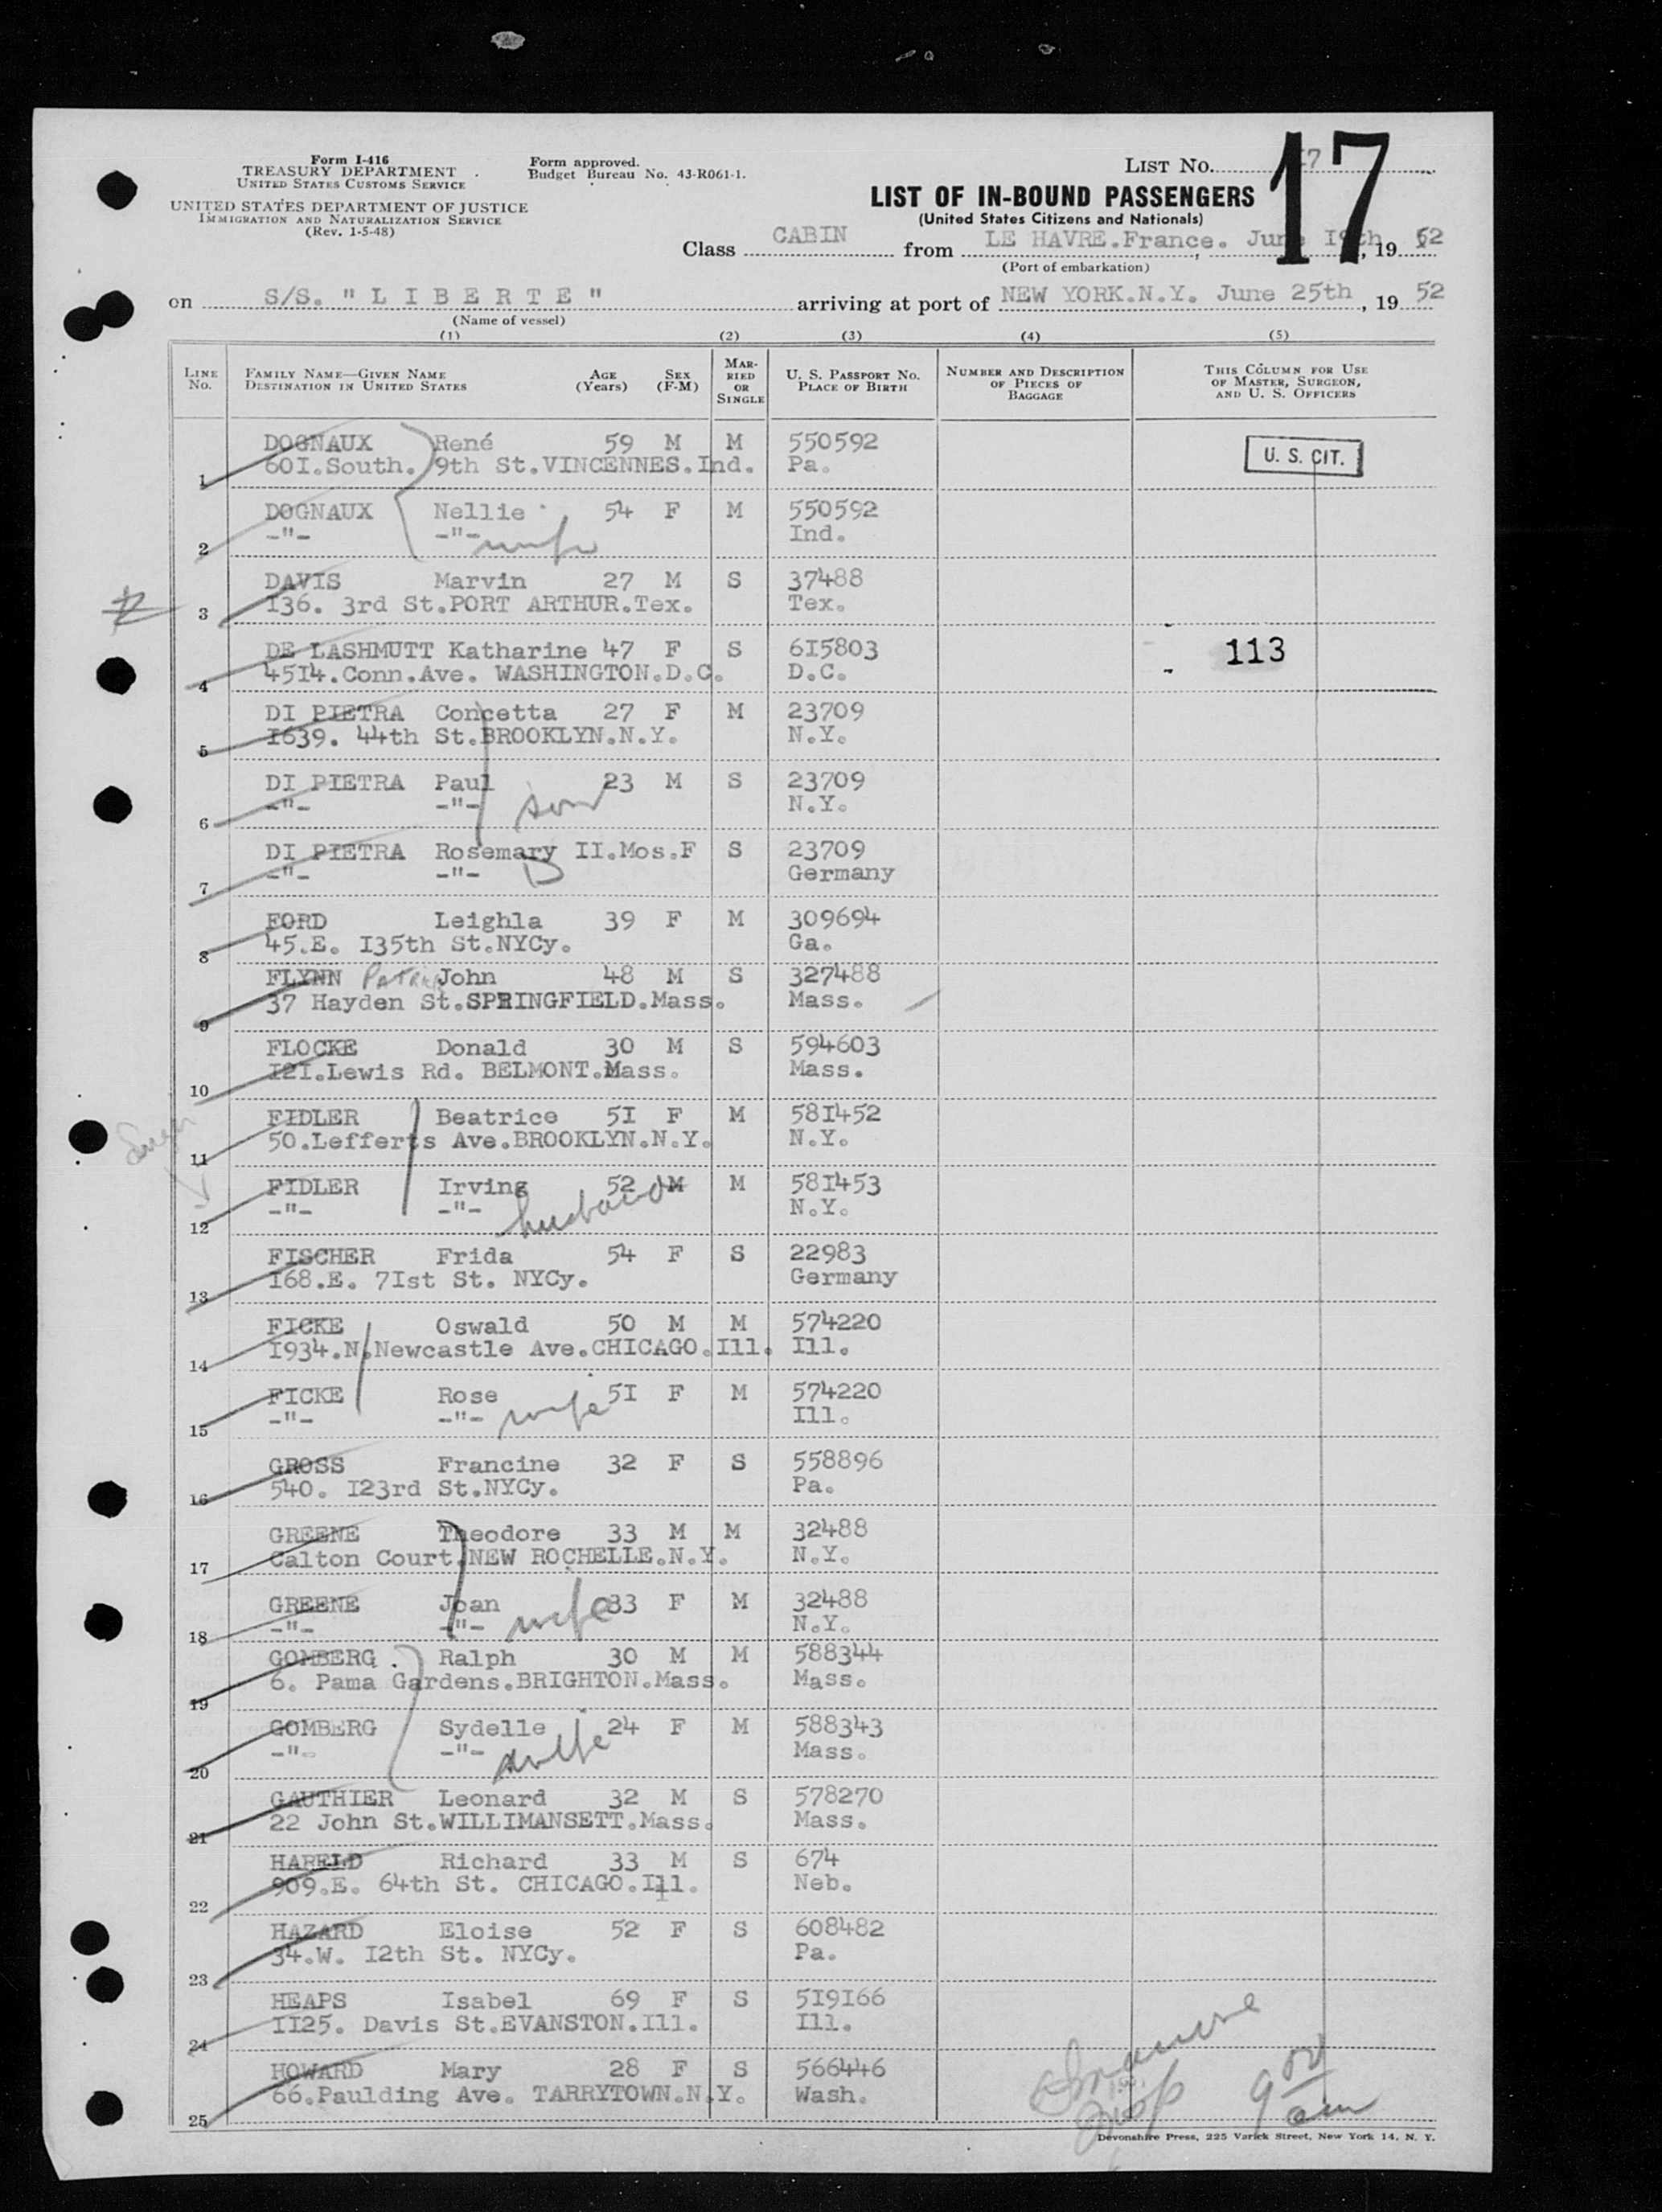 Form I-416
TREASURY DEPARTMENT
UNITED STATES CUSTOMS SERVICE
UNITED STATES DEPARTMENT OF JUSTICE
IMMIGRATION AND NATURALIZATION SERVICE
(Rev. 1-5-48)
Form approved.
Budget Bureau No. 43-R061-1.
LIST No. 17
17
LIST OF IN-BOUND PASSENGERS
(United States Citizens and Nationals)
Class CABIN from LE HAVRE.France. June I9th, 19 52
(Port of embarkation)
on S/S. "L I B E R T E" arriving at port of NEW YORK.N.Y. June 25th, 19 52
(Name of vessel)
(1) (2) (3) (4) (5)
LINE No. FAMILY NAME—GIVEN NAME DESTINATION IN UNITED STATES AGE (Years) SEX (F-M) MARRIED OR SINGLE U. S. PASSPORT NO. PLACE OF BIRTH NUMBER AND DESCRIPTION OF PIECES OF BAGGAGE THIS COLUMN FOR USE OF MASTER, SURGEON, AND U. S. OFFICERS
DOGNAUX René 59 M M 550592
1 60I.South. 9th St.VINCENNES.Ind. Pa.
U. S. CIT.
DOGNAUX Nellie 54 F M 550592
2 -"- -"- wife Ind.
DAVIS Marvin 27 M S 37488
3 I36. 3rd St.PORT ARTHUR.Tex. Tex.
DE LASHMUTT Katharine 47 F S 6I5803
4 45I4.Conn.Ave. WASHINGTON.D.C. D.C.
113
DI PIETRA Concetta 27 F M 23709
5 I639. 44th St.BROOKLYN.N.Y. N.Y.
DI PIETRA Paul 23 M S 23709
6 -"- -"- son N.Y.
DI PIETRA Rosemary II.Mos.F S 23709
7 -"- -"- D Germany
FORD Leighla 39 F M 309694
8 45.E. I35th St.NYCy. Ga.
FLYNN John 48 M S 327488
9 37 Hayden St.SPRINGFIELD.Mass. Mass.
FLOCKE Donald 30 M S 594603
10 I2I.Lewis Rd. BELMONT.Mass. Mass.
FIDLER Beatrice 5I F M 58I452
11 50.Lefferts Ave.BROOKLYN.N.Y. N.Y.
FIDLER Irving 52 M M 58I453
12 -"- -"- husband N.Y.
FISCHER Frida 54 F S 22983
13 I68.E. 7Ist St. NYCy. Germany
FICKE Oswald 50 M M 574220
14 I934.N.Newcastle Ave.CHICAGO.Ill. Ill.
FICKE Rose 5I F M 574220
15 -"- -"- wife Ill.
GROSS Francine 32 F S 558896
16 540. I23rd St.NYCy. Pa.
GREENE Theodore 33 M M 32488
17 Calton Court.NEW ROCHELLE.N.Y. N.Y.
GREENE Joan 33 F M 32488
18 -"- -"- wife N.Y.
GOMBERG. Ralph 30 M M 588344
19 6. Pama Gardens.BRIGHTON.Mass. Mass.
GOMBERG Sydelle 24 F M 588343
20 -"- -"- wife Mass.
GAUTHIER Leonard 32 M S 578270
21 22 John St.WILLIMANSETT.Mass. Mass.
HARELD Richard 33 M S 674
22 909.E. 64th St. CHICAGO.Ill. Neb.
HAZARD Eloise 52 F S 608482
23 34.W. I2th St. NYCy. Pa.
HEAPS Isabel 69 F S 5I9I66
24 II25. Davis St.EVANSTON.Ill. Ill.
HOWARD Mary 28 F S 566446
25 66.Paulding Ave. TARRYTOWN.N.Y. Wash.
Insp
9 am
Devonshire Press, 225 Varick Street, New York 14, N. Y.